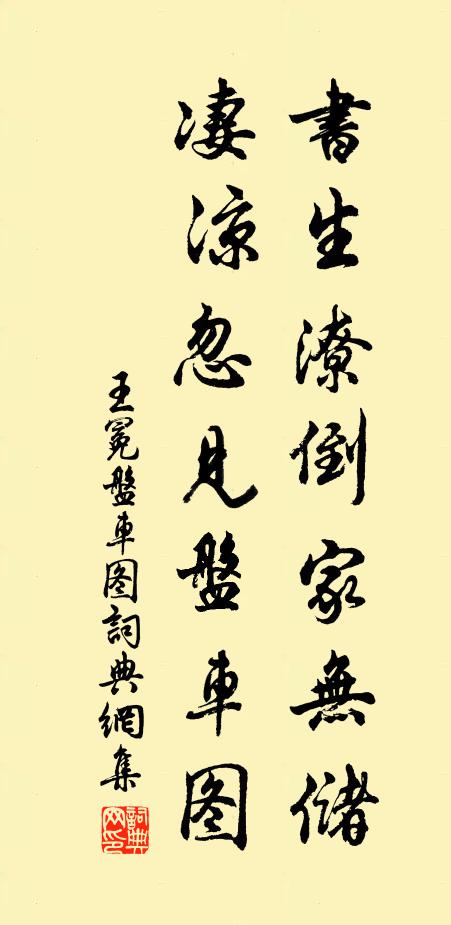 書生潦倒家無儲
凄凉忽見盤車图
王冕盤車图詞典網集
詞典网印